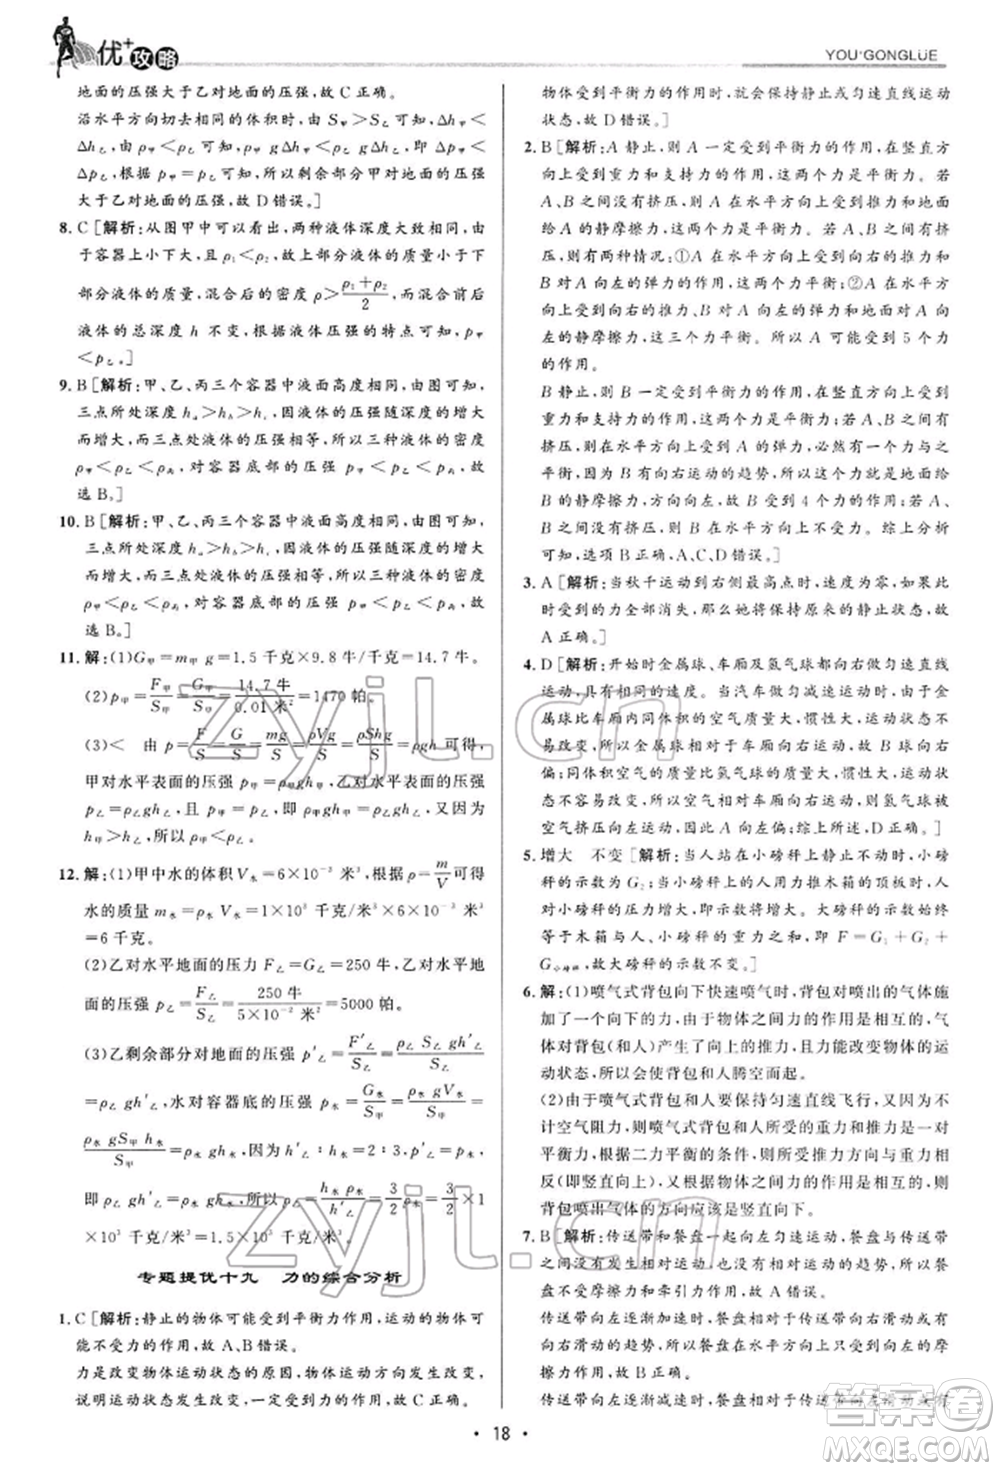 优+攻略
YOU+GONGLUE
地面的压强大于乙对地面的压强,故 C 正确。
沿水平方向切去相同的体积时,由 S甲>S乙可知 Δh甲<
Δh乙,由于 ρ甲<ρ乙,根据 p=ρgh 可知,减小的压强 Δp甲<
Δp乙,因为原来 p甲=p乙,所以剩余部分甲对地面的压强
大于乙对地面的压强,故 D 错误。]
8. C [解析:从图甲中可以看出,两种液体深度大致相同,由
于容器上小下大,且 ρ₁<ρ₂,混合前上部分液体的质量小于下
部分液体的质量,混合后的密度 ρ>(ρ₁+ρ₂)/2,而混合前后
液体的总深度 h 不变,根据液体压强的特点可知,p甲
<p乙。]
9. B [解析:甲、乙、丙三个容器中液面高度相同,由图可知,
三点所处深度 ha>hb>hc,因液体的压强随深度的增大
而增大,三点处液体的压强相等,所以三个液体的密度
ρ甲<ρ乙<ρ丙,对容器底部的压强 p甲<p乙<p丙,故
选 B。]
10. B [解析:甲、乙、丙三个容器中液面高度相同,由图可知,
三点所处深度 ha>hb>hc,因液体的压强随深度的增大
而增大,三点处液体的压强相等,所以三个液体的密度
ρ甲<ρ乙<ρ丙,对容器底部的压强 p甲<p乙<p丙,故
选 B。]
11. 解:(1)G甲=m甲 g=1.5 千克×9.8 牛/千克=14.7 牛。
(2)p甲=F甲/S甲=G甲/S甲=14.7 牛/0.01 米²=1470 帕。
(3)< 由 p=F/S=G/S=mg/S=ρVg/S=ρShg/S=ρgh 可得,
甲对水平表面的压强 p甲=ρgh甲,乙对水平表面的压强
p乙=ρgh乙,且 p甲=p乙,即 ρgh甲=ρgh乙,又因为
h甲>h乙,所以 ρ甲<ρ乙。
12. 解:(1)甲中水的体积 V水=6×10⁻³ 米³,根据 ρ=m/V可得
水的质量 m水=ρ水 V水=1×10³ 千克/米³×6×10⁻³ 米³
=6 千克。
(2)乙对水平地面的压力 F乙=G乙=250 牛,乙对水平地
面的压强 p乙=F乙/S乙=250 牛/5×10⁻² 米²=5000 帕。
(3)乙剩余部分对地面的压强 p′乙=F′乙/S乙=ρ乙 S乙 gh′乙/S乙=
ρ乙 gh′乙,水对容器底的压强 p水=G水/S甲=ρ水 gV水/S甲=
ρ水 gS甲 h水/S甲=ρ水 gh水,因为 h′乙:h水=2:3,p′乙=p水,
即 ρ乙 gh′乙=ρ水 gh水,所以 ρ乙=h水 ρ水/h′乙=3/2 ρ水=3/2×1
×10³ 千克/米³=1.5×10³ 千克/米³。
专题提优十九 力的综合分析
1. C [解析:静止的物体可能受到平衡力作用,运动的物体可
能不受力的作用,故 A、B 错误。
力是改变物体运动状态的原因,物体运动方向发生改变,
说明运动状态发生改变,则一定受到了力的作用,故 C 正确。
物体受到平衡力的作用时,就会保持静止或匀速直线运动
状态,故 D 错误。]
2. B [解析:A 静止,则 A 一定受到平衡力的作用,在竖直方
向上受到重力和支持力的作用,这两个力是平衡力。若
A、B之间没有挤压,A 在水平方向上受到推力和地面
给 A 的静摩擦力,这两个力是平衡力。若 A、B 之间有挤
压,有两种情况:①A 在水平方向上受到向右的推力和
B 对 A 向左的弹力和地面对 A 向左的静摩擦力;②A 在水
平方向上受到向右的推力、B 对 A 向左的弹力和地面对 A 向
左的静摩擦力。所以 A 可能受到 5 个力
的作用。
B 静止,则 B 一定受到平衡力的作用,在竖直方向上受到
重力和支持力的作用,这两个力是平衡力;若 A、B 之间有
挤压,B 在水平方向上受到 A 的弹力,必然有一个力与之
平衡,因 B 有向右运动的趋势,所以一定受到地面给
B 的静摩擦力,方向向左,故 B 受到 4 个力的作用。若 A、
B 之间没有挤压,则 B 在水平方向上不受力。综上分析
可知,选项 B 正确,A、C、D 错误。]
3. A [解析:当秋千运动到右侧最高点时,速度为零,如果此
时受到的力全部消失,那么她将保持原来的静止状态,故
A 正确。]
4. D [解析:开始时金属球、车厢及氢气球向右做匀速直线
运动,具有相同的速度。当汽车做匀减速运动时,由于金
属球比车厢内同体积的空气质量大,惯性大,运动状态不
易改变,所以金属球相对于车厢向右运动,故 B 球向右
偏;同体积空气的质量比氢气的质量大,惯性大,运动状
态不易改变,所以空气相对车厢向右运动,则氢气球被
空气挤压向左运动,因此 A 向左偏;综上所述,D 正确。]
5. 增大 不变 [解析:当人站在小磅秤上静止不动时,小磅
秤的示数为 G₂;当小磅秤上的人用力推木箱的顶板时,人对
的压力增大,即示数增大。大磅秤的示数始终
等于木箱与人、小磅秤的重力之和,即 F=G₁+G₂+
G小磅秤,故大磅秤的示数不变。]
6. 解:(1)喷气式背包向下快速喷气时,背包对喷出的气体施
加了一个向下的力,由于物体之间力的作用是相互的,气
体对背包(和人)产生了向上的推力,且力能改变物体的运
动状态,所以能使背包和人腾空而起。
(2)由于喷气式背包和人要保持匀速直线飞行,又因为不
计空气阻力,则喷气式背包和人所受的重力和推力是一对
平衡力,根据二力平衡的条件,则所受推力的方向与重力相
反(即竖直向上),因物体间力的作用是相互的,则喷气式
背包喷出气体的方向应该是竖直向下。
7. B [解析:传送带和餐盘一起向右匀速运动时,传送带与餐
盘之间没有相对运动,也没有相对运动的趋势,所以餐
盘不受摩擦力和牵引力作用,故 A 错误。
传送带向右逐渐加速时,餐盘相对传送带向左滑动或有
向左滑动的趋势,所以餐盘在水平方向上只受到向右的摩
擦力作用,故 B 正确。
传送带向右逐渐减速时,餐盘相对传送带向右滑动或有
· 18 ·
zyjl.cn
zyjl.cn
答案圈
MXQE.COM